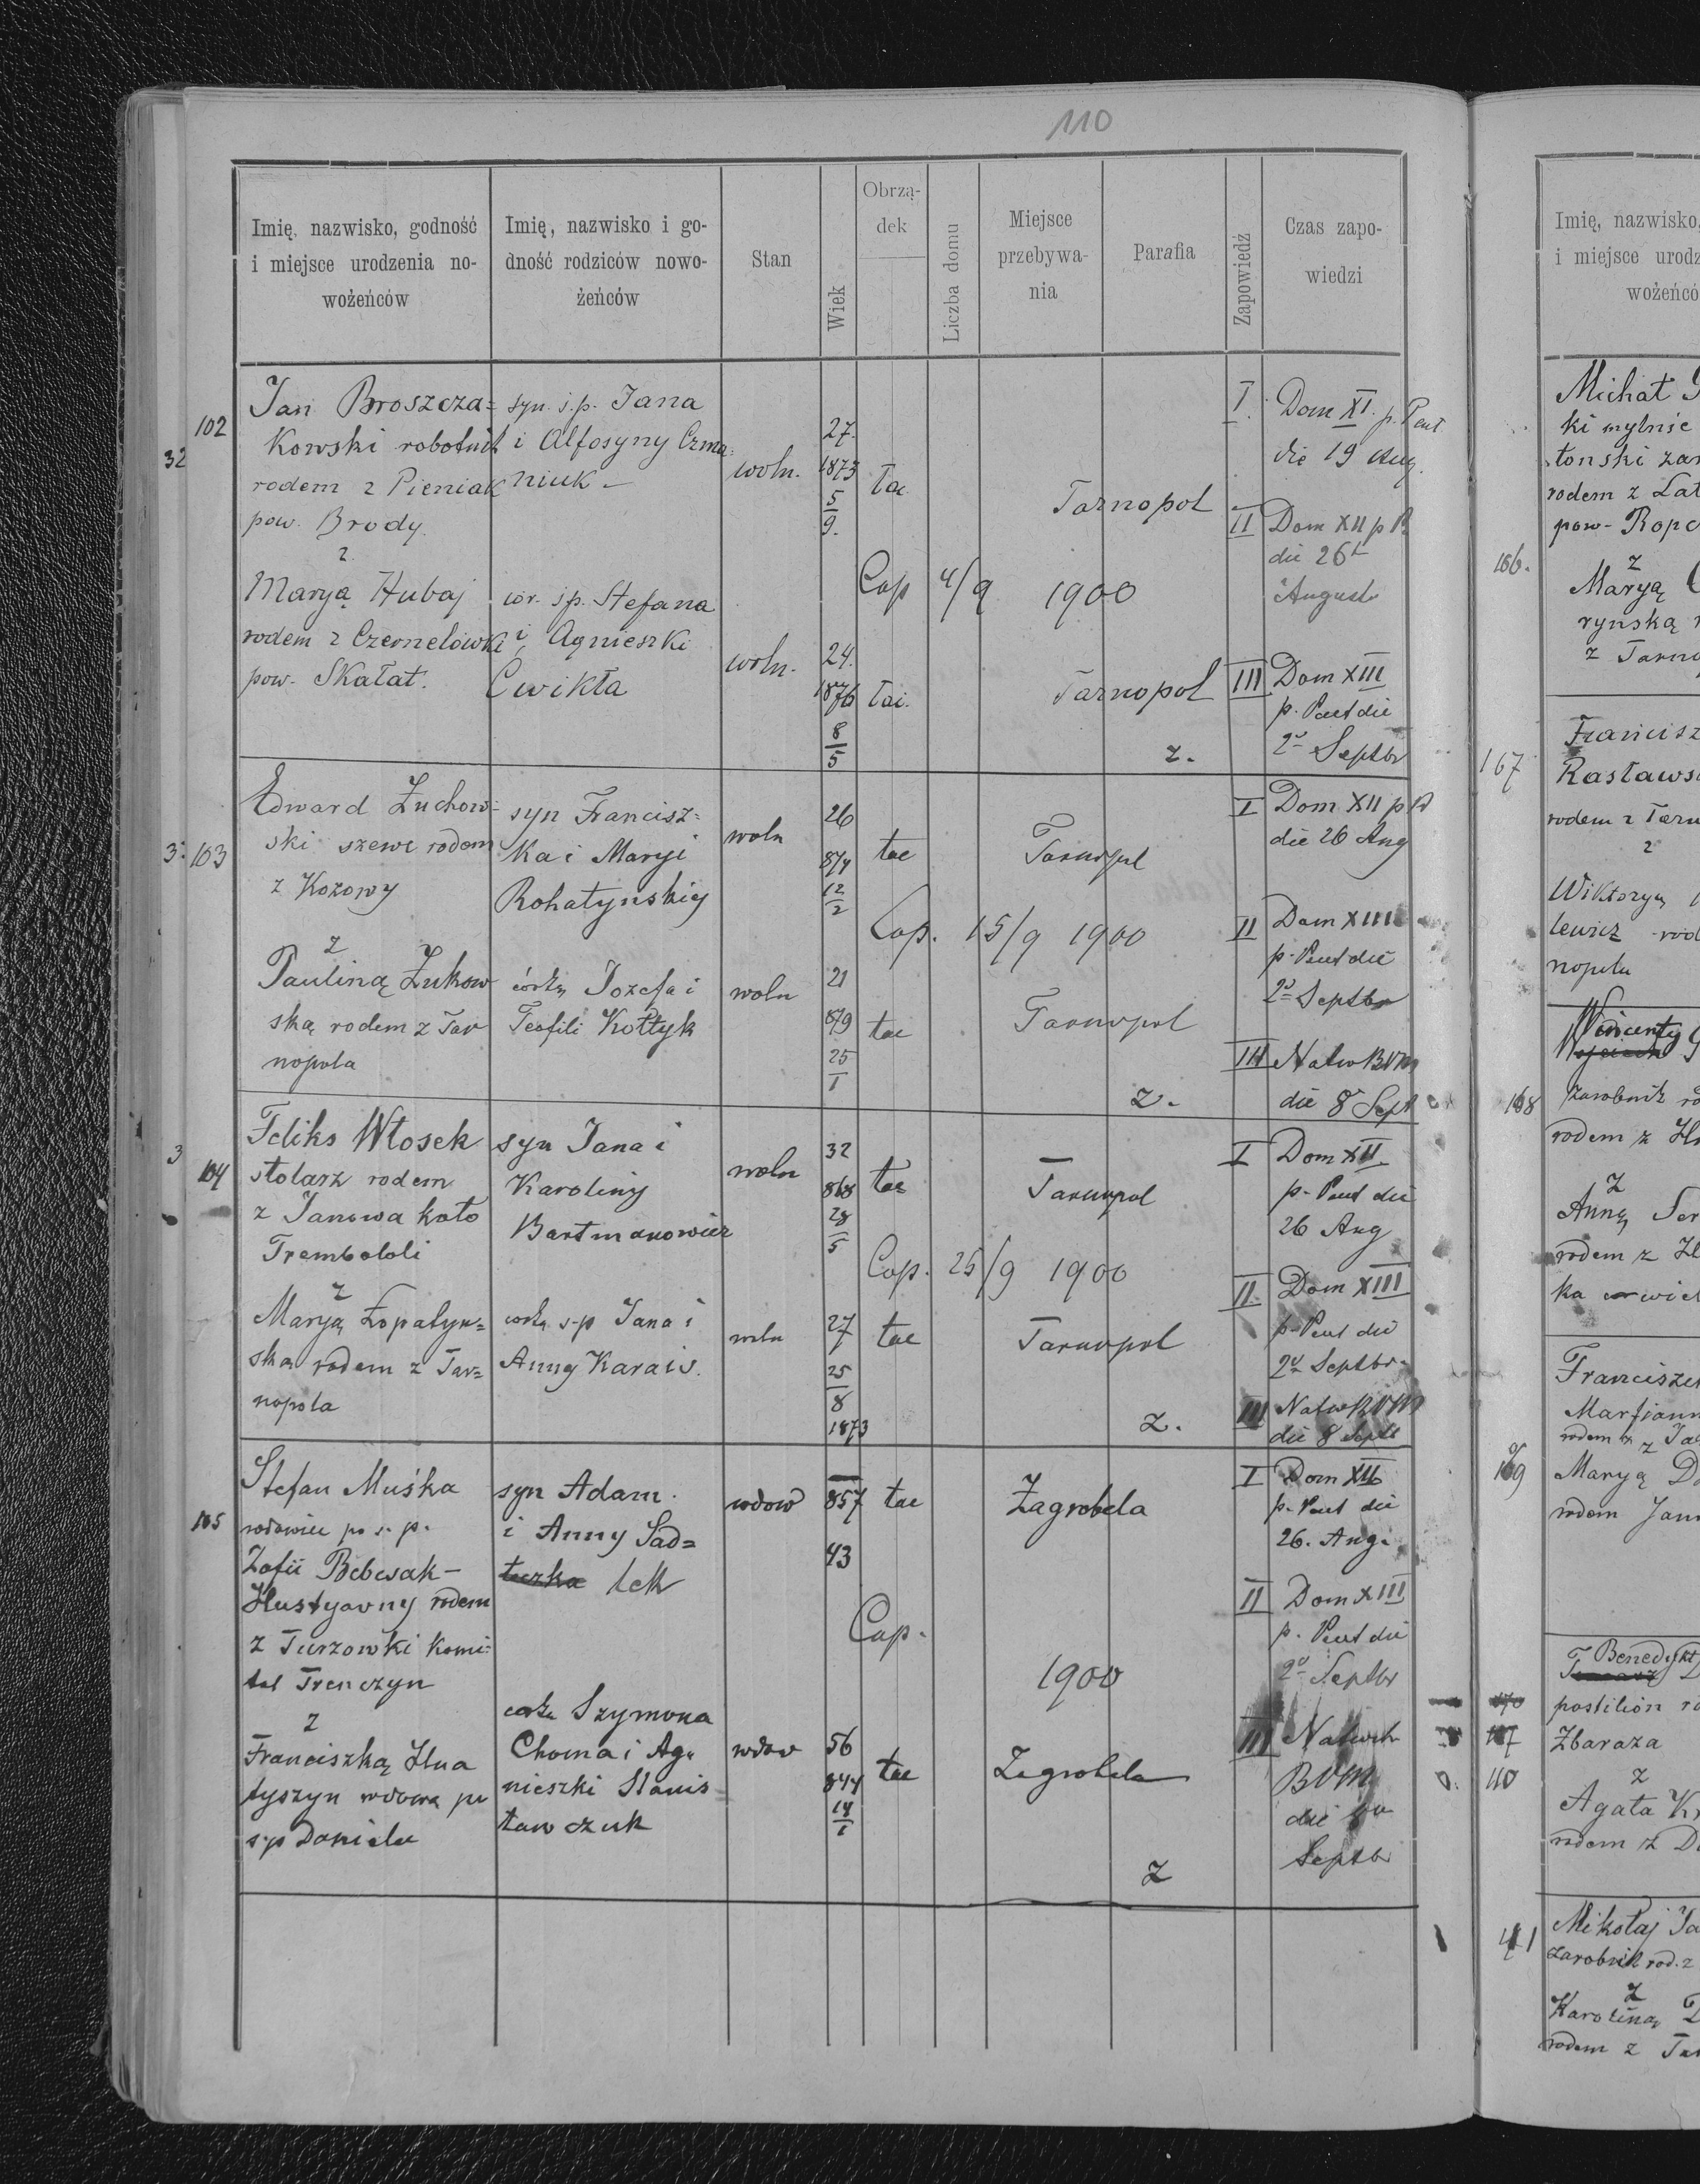 110
Imię, nazwisko, godność
i miejsce urodzenia no-
wożeńców
Imię, nazwisko i go-
dność rodziców nowo-
żeńców
Stan
Wiek
Obrzą-
dek
Liczba domu
Miejsce
przebywa-
nia
Parafia
Zapowiedź
Czas zapo-
wiedzi
32
102
Jan Broszcza=
kowski robotnik
rodem z Pieniak
pow. Brody.
z
Maryą Hubaj
rodem z Czernelówki
pow. Skałat.
syn ś.p. Jana
i Alfosyny Czma=
niuk –
cór. ś.p. Stefana
i Agnieszki
Cwikła
woln.
woln.
27.
1873
5
9.
24.
1876
8
5
łac
łac.
Cop 4/9 1900
Tarnopol
Tarnopol
z.
I. Dom XI. p. Pent.
die 19 Aug.
II Dom XII p P.
die 26t
August
III Dom XIII
p. Pent die
2o Septbr
3. 103
Edward Żuchow-
ski szewc rodem
z Kozowy
z
Pauliną Żukow
ską rodem z Tar
nopola
syn Francisz=
ka i Maryi
Rohatynskiej
córką Józefa i
Teofili Kołtyk
woln
woln
26
874
12
2
21
879
25
1
łac
łac
Cop. 15/9 1900
Tarnopol
Tarnopol
z.
I Dom XII p P
die 26 Aug
II Dom XIII
p. Pent die
2o Septbr
III Nativ BVM
die 8 Sept
3
104
Feliks Włosek
stolarz rodem
z Janowa koło
Trembololi
z
Maryą Łopatyn=
ską rodem z Tar=
nopola
syn Jana i
Karoliny
Bartmanowicz
córką ś.p Jana i
Anny Karais.
woln
woln
32
868
28
5
27
25
8
1873
łac
łac
Cop. 25/9 1900
Tarnopol
Tarnopol
z.
I Dom XII
p. Pent die
26 Aug
II Dom XIII
p. Pent die
2o Septbr.
III Nativ BVM
die 8 Septb
105
Stefan Muśka
wdowiec po ś. p.
Zofii Bebesak –
Hustyavny rodem
z Turzowki Komi=
tat Trenczyn
z
Franciszką Hna
tyszyn wdowa po
ś.p Danielu
syn Adam.
i Anny Sad=
lek
córka Szymona
Choma i Ag=
nieszki Stanis
ławczuk
wdow
wdow
857
43
56
844
18
1
łac
łac
Cop.
1900
Zagrobela
Zagrobela
z
I Dom XII
p. Pent die
26. Aug.
II Dom XIII
p. Pent die
2o Septbr
III Nativit
BVM
die
Septbr
Imię, nazwisko,
i miejsce urodz
wożeńcó
166.
Michał
ki mylnie
tonski zar
rodem z Łat
pow- Ropc
z
Maryą
rynską
z Tarno
167
Francisz
Rasławs
rodem z Tarn
z
Wiktoryą
lewicz rod
nopola
168
Wincenty
zarobnik ro
rodem z
z
Anną Ser
rodem z
169
Francisze
Marjann
rodem z
z
Maryą
rodem Jan
Benedykt
postilion ro
Zbaraża
z
Agata
rodem z
Mikołaj Ja
zarobnik rod. z
z
Karoliną
rodem z Tar